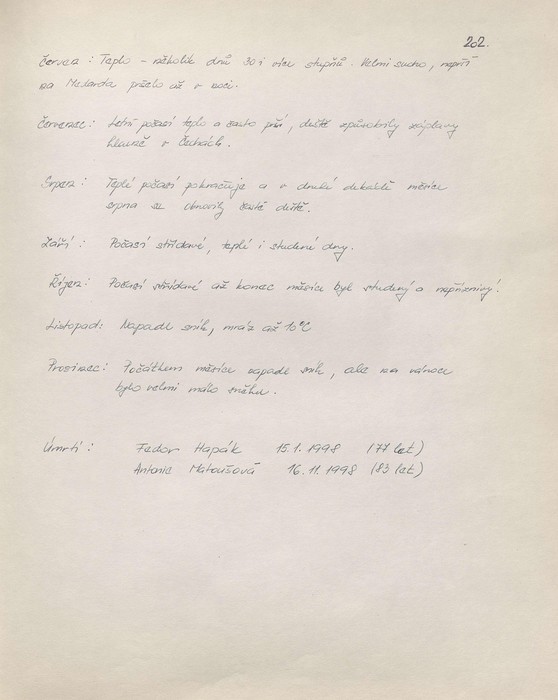 202.
Červen: Teplo - několik dnů 30 i více stupňů. Velmi sucho, neprší
na Medarda pršelo až v noci.
Červenec: Letní počasí teplo a často prší, deště způsobily záplavy
hlavně v Čechách.
Srpen: Teplé počasí pokračuje a v druhé dekádě měsíce
srpna se obnovily časté deště.
Září: Počasí střídavé, teplé i studené dny.
Říjen: Počasí střídavé až konec měsíce byl studený a nepříznivý.
Listopad: Napadl sníh, mráz až 10°C
Prosinec: Počátkem měsíce napadl sníh, ale na vánoce
bylo velmi málo sněhu.
Úmrtí: Fedor Hapák 15.1.1998 (77 let)
Antonie Matoušová 16.11.1998 (83 let)